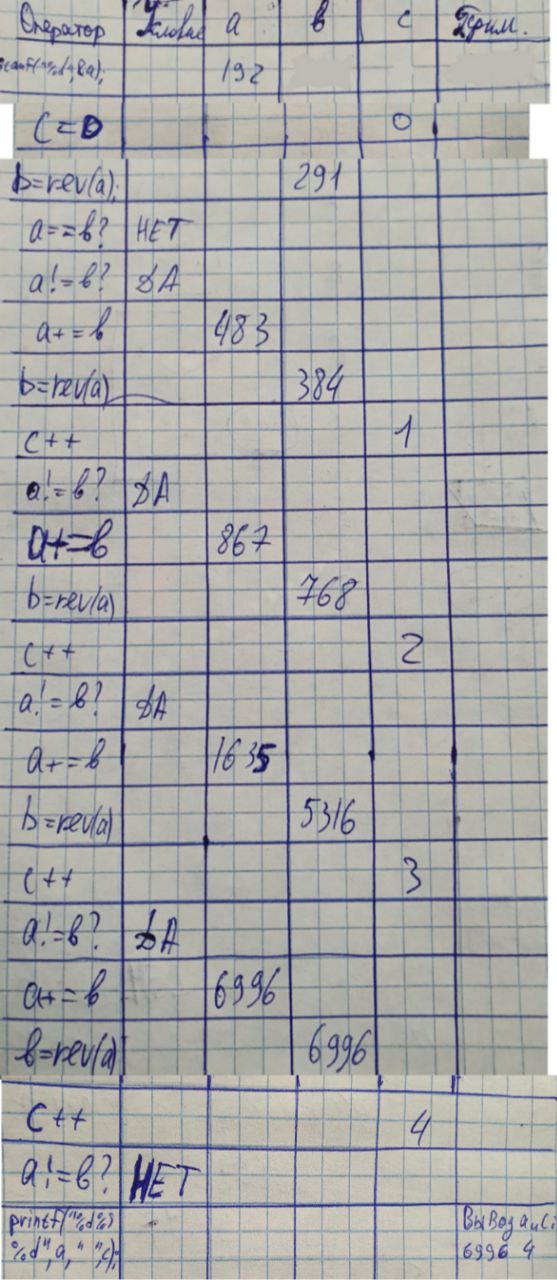 Оператор Условие a в c Прим.
scanf("%d",&a); 192
c=0 0
b=rev(a); 291
a==в? НЕТ
a!=в? ДА
a+=в 483
b=rev(a) 384
c++ 1
a!=в? ДА
a+=в 867
b=rev(a) 768
c++ 2
a!=в? ДА
a+=в 1635
b=rev(a) 5316
c++ 3
a!=в? ДА
a+=в 6996
в=rev(a) 6996
c++ 4
a!=в? НЕТ
printf("%d%s Вывод a и c:
%d",a," ",c); 6996 4